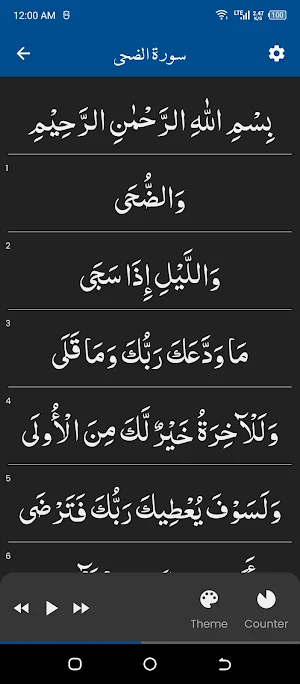 12:00 AM LTE 2.47 K/s 100
سورة الضحى
بِسْمِ اللهِ الرَّحْمٰنِ الرَّحِيْمِ
1
وَالضُّحَى
2
وَاللَّيْلِ إِذَا سَجَى
3
مَا وَدَّعَكَ رَبُّكَ وَمَا قَلَى
4
وَلَلْآخِرَةُ خَيْرٌ لَّكَ مِنَ الْأُولَى
5
وَلَسَوْفَ يُعْطِيكَ رَبُّكَ فَتَرْضَى
6
Theme Counter